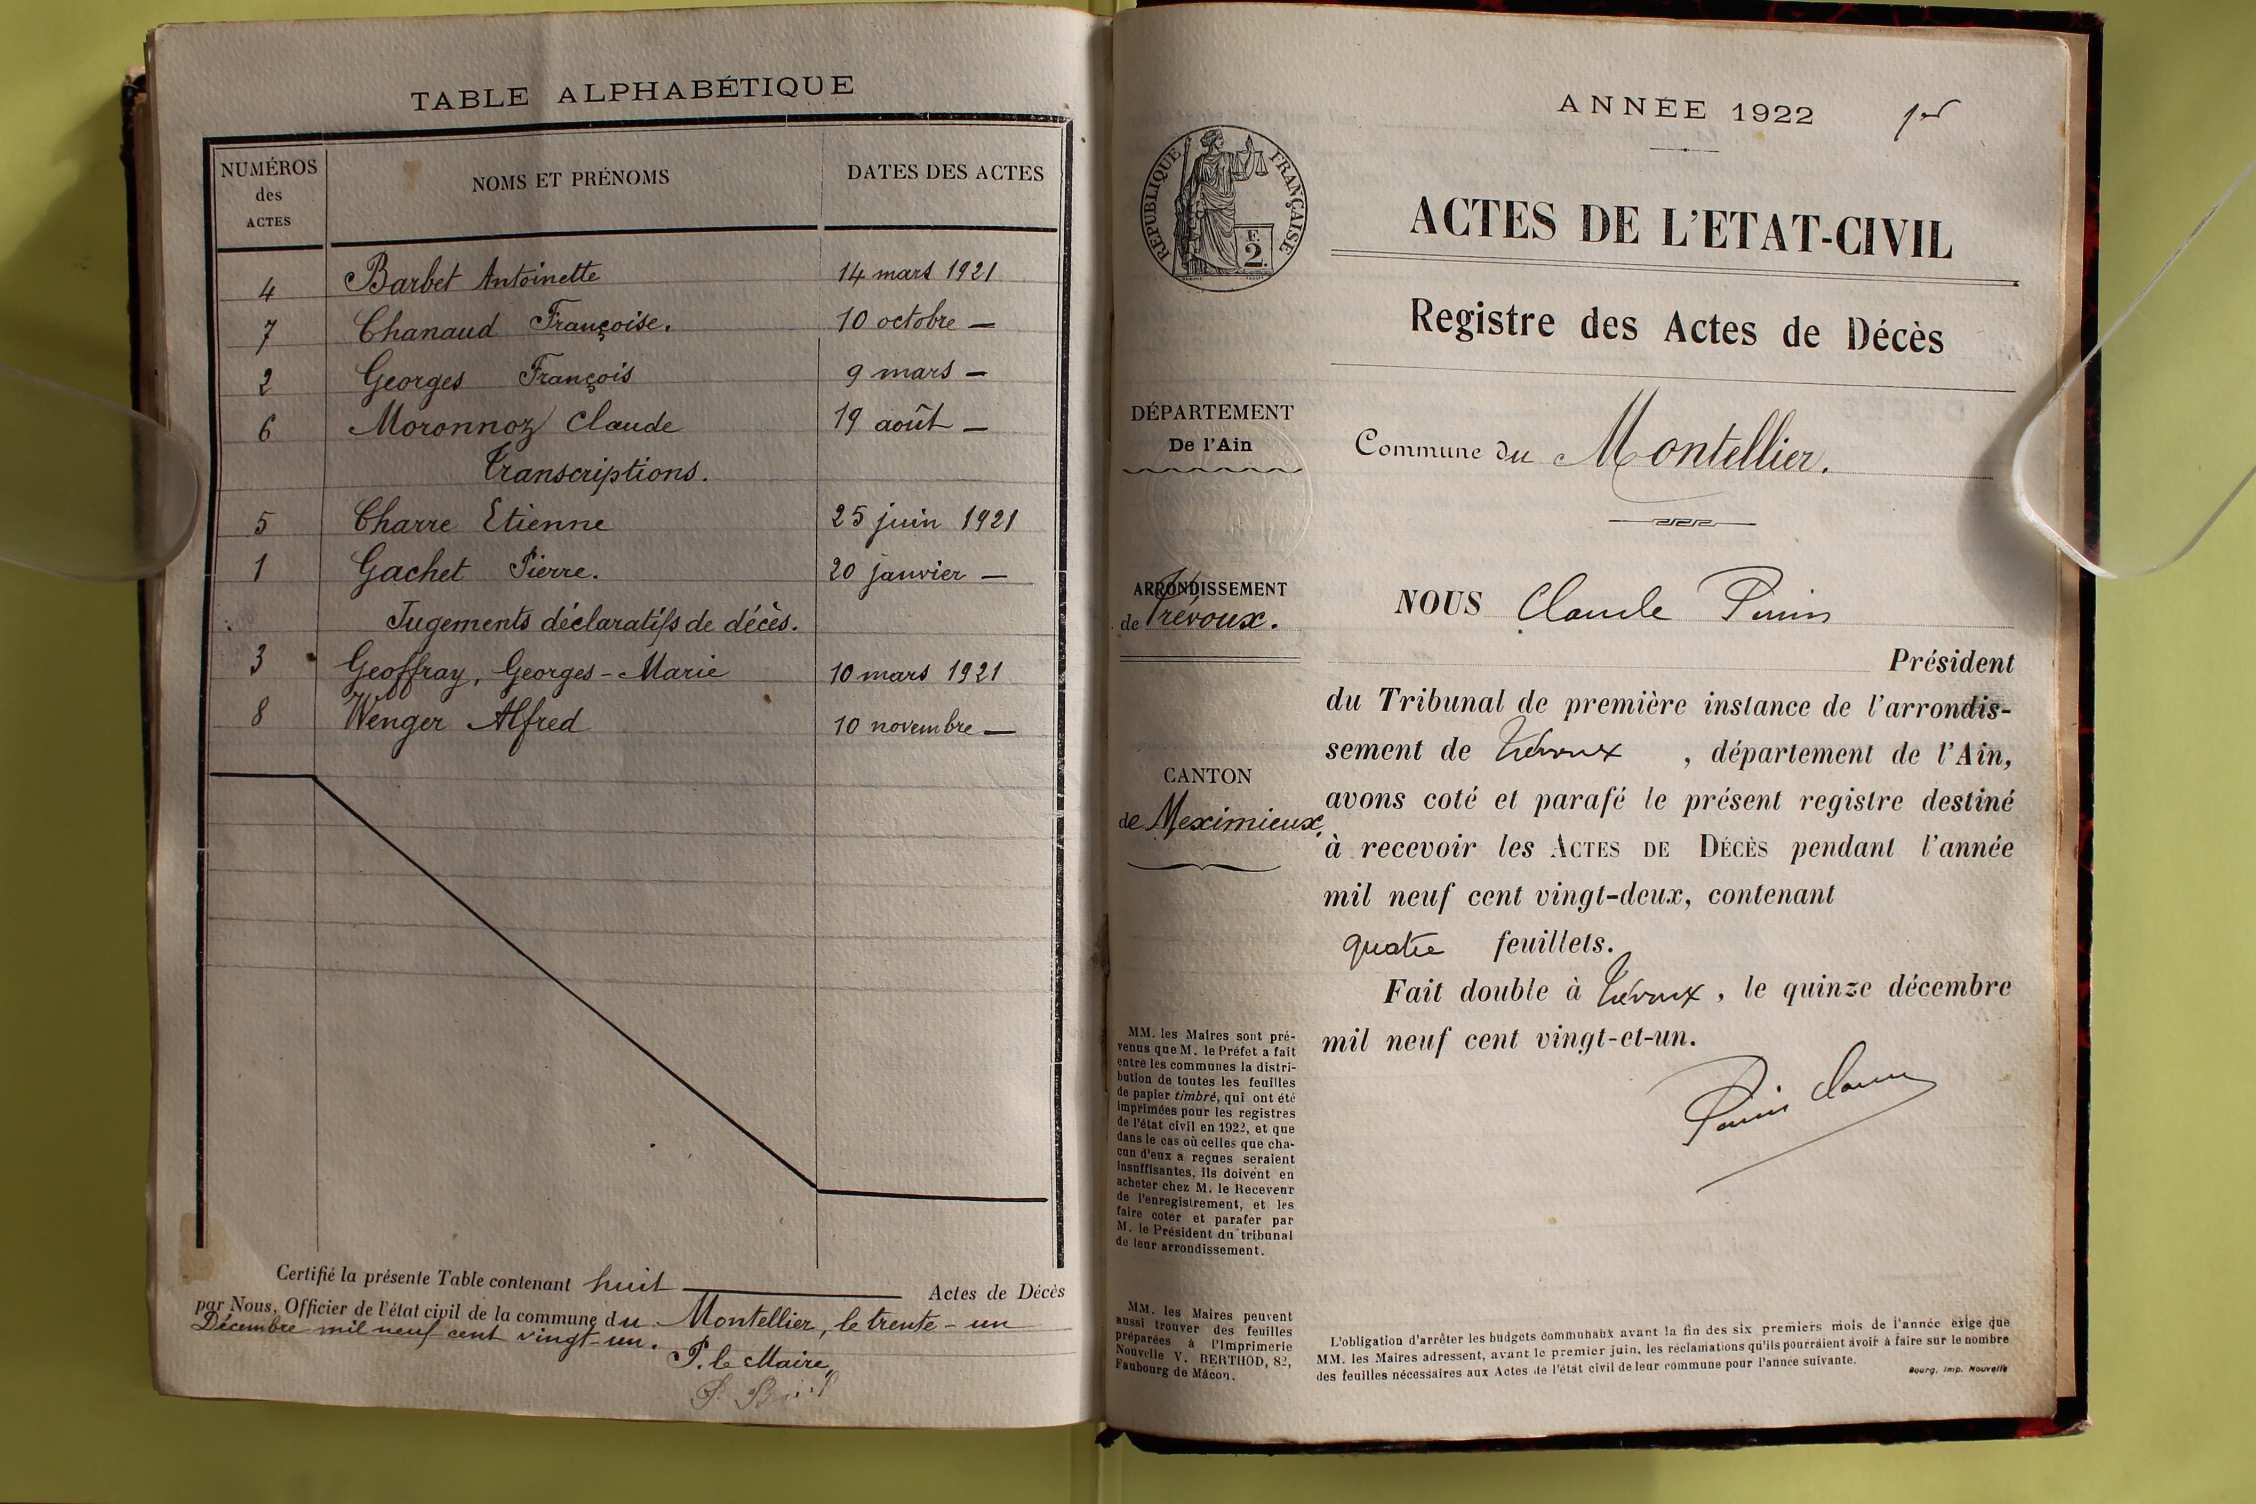 TABLE ALPHABÉTIQUE
NUMÉROS des ACTES NOMS ET PRÉNOMS DATES DES ACTES
4 Barbet Antoinette 14 mars 1921
7 Chanaud Françoise. 10 octobre —
2 Georges François 9 mars —
6 Moronnoz Claude 19 août —
Transcriptions.
5 Charre Etienne 25 juin 1921
1 Gachet Pierre. 20 janvier —
Jugements déclaratifs de décès.
3 Geoffray, Georges-Marie 10 mars 1921
8 Wenger Alfred 10 novembre —
Certifié la présente Table contenant huit Actes de Décès
par Nous, Officier de l'état civil de la commune du Montellier, le trente-un
Décembre mil neuf cent vingt-un.
P. le Maire,
ANNÉE 1922 1er
RÉPUBLIQUE FRANÇAISE
F. 2.
ACTES DE L'ETAT-CIVIL
Registre des Actes de Décès
DÉPARTEMENT
De l'Ain
Commune du Montellier.
ARRONDISSEMENT
de Trévoux.
CANTON
de Meximieux
NOUS Claude
Président
du Tribunal de première instance de l'arrondis-
sement de Trévoux, département de l'Ain,
avons coté et parafé le présent registre destiné
à recevoir les ACTES DE DÉCÈS pendant l'année
mil neuf cent vingt-deux, contenant
quatre feuillets.
Fait double à Trévoux, le quinze décembre
mil neuf cent vingt-et-un.
MM. les Maires sont pré-
venus que M. le Préfet a fait
entre les communes la distri-
bution de toutes les feuilles
de papier timbré, qui ont été
imprimées pour les registres
de l'état civil en 1922, et que
dans le cas où celles que cha-
cun d'eux a reçues seraient
insuffisantes, ils doivent en
acheter chez M. le Receveur
de l'enregistrement, et les
faire coter et parafer par
M. le Président du tribunal
de leur arrondissement.
MM. les Maires peuvent
aussi trouver des feuilles
préparées à l'Imprimerie
Nouvelle V. BERTHOD, 82,
Faubourg de Mâcon.
L'obligation d'arrêter les budgets communaux avant la fin des six premiers mois de l'année exige que
MM. les Maires adressent, avant le premier juin, les réclamations qu'ils pourraient avoir à faire sur le nombre
des feuilles nécessaires aux Actes de l'état civil de leur commune pour l'année suivante.
Bourg, Imp. Nouvelle